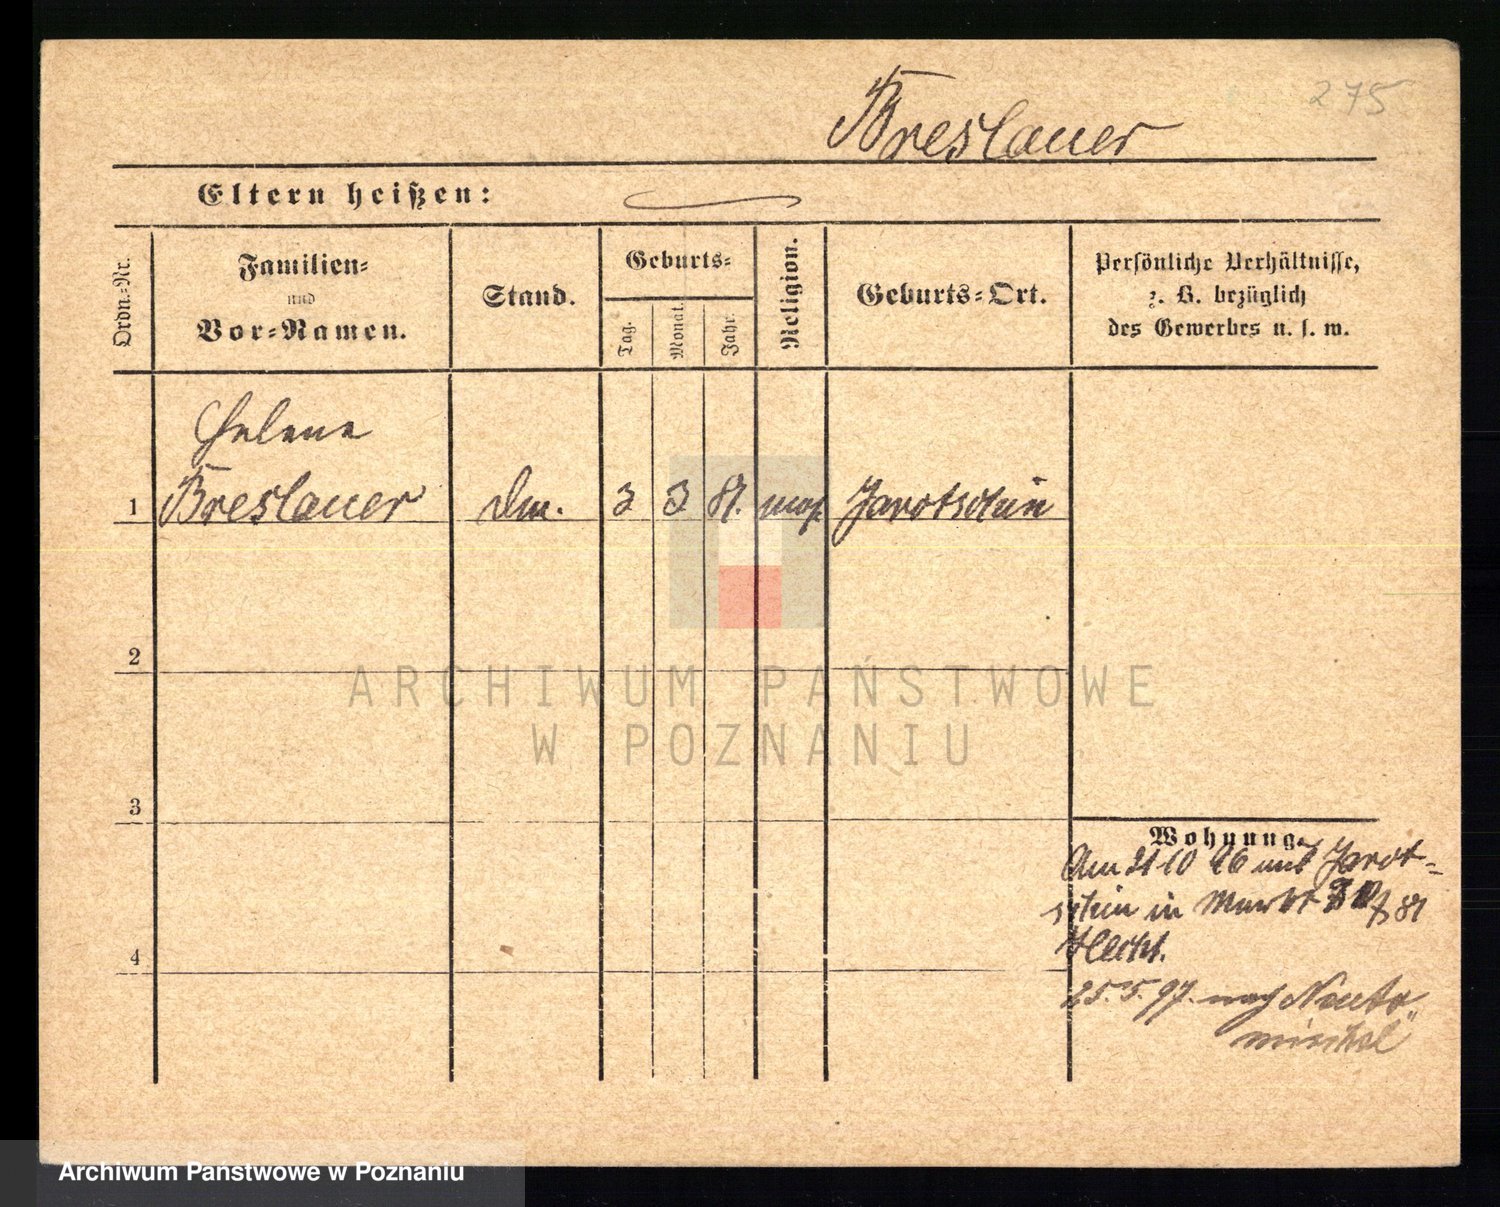 275
Breslauer
Eltern heißen:
Ordn.-Nr.
Familien-
und
Vor-Namen.
Stand.
Geburts-
Tag.
Monat.
Jahr.
Religion.
Geburts-Ort.
Persönliche Verhältnisse,
z. B. bezüglich
des Gewerbes u. s. w.
Helene
1 Breslauer 3 3 81. mos. Jarotschin
2
ARCHIWUM PAŃSTWOWE
W POZNANIU
3
Wohnung.
Am 21 10 96 aus Jarot-
schin in Markt
Hecht.
4
25.5.97. nach Neuto
mischel
Archiwum Państwowe w Poznaniu